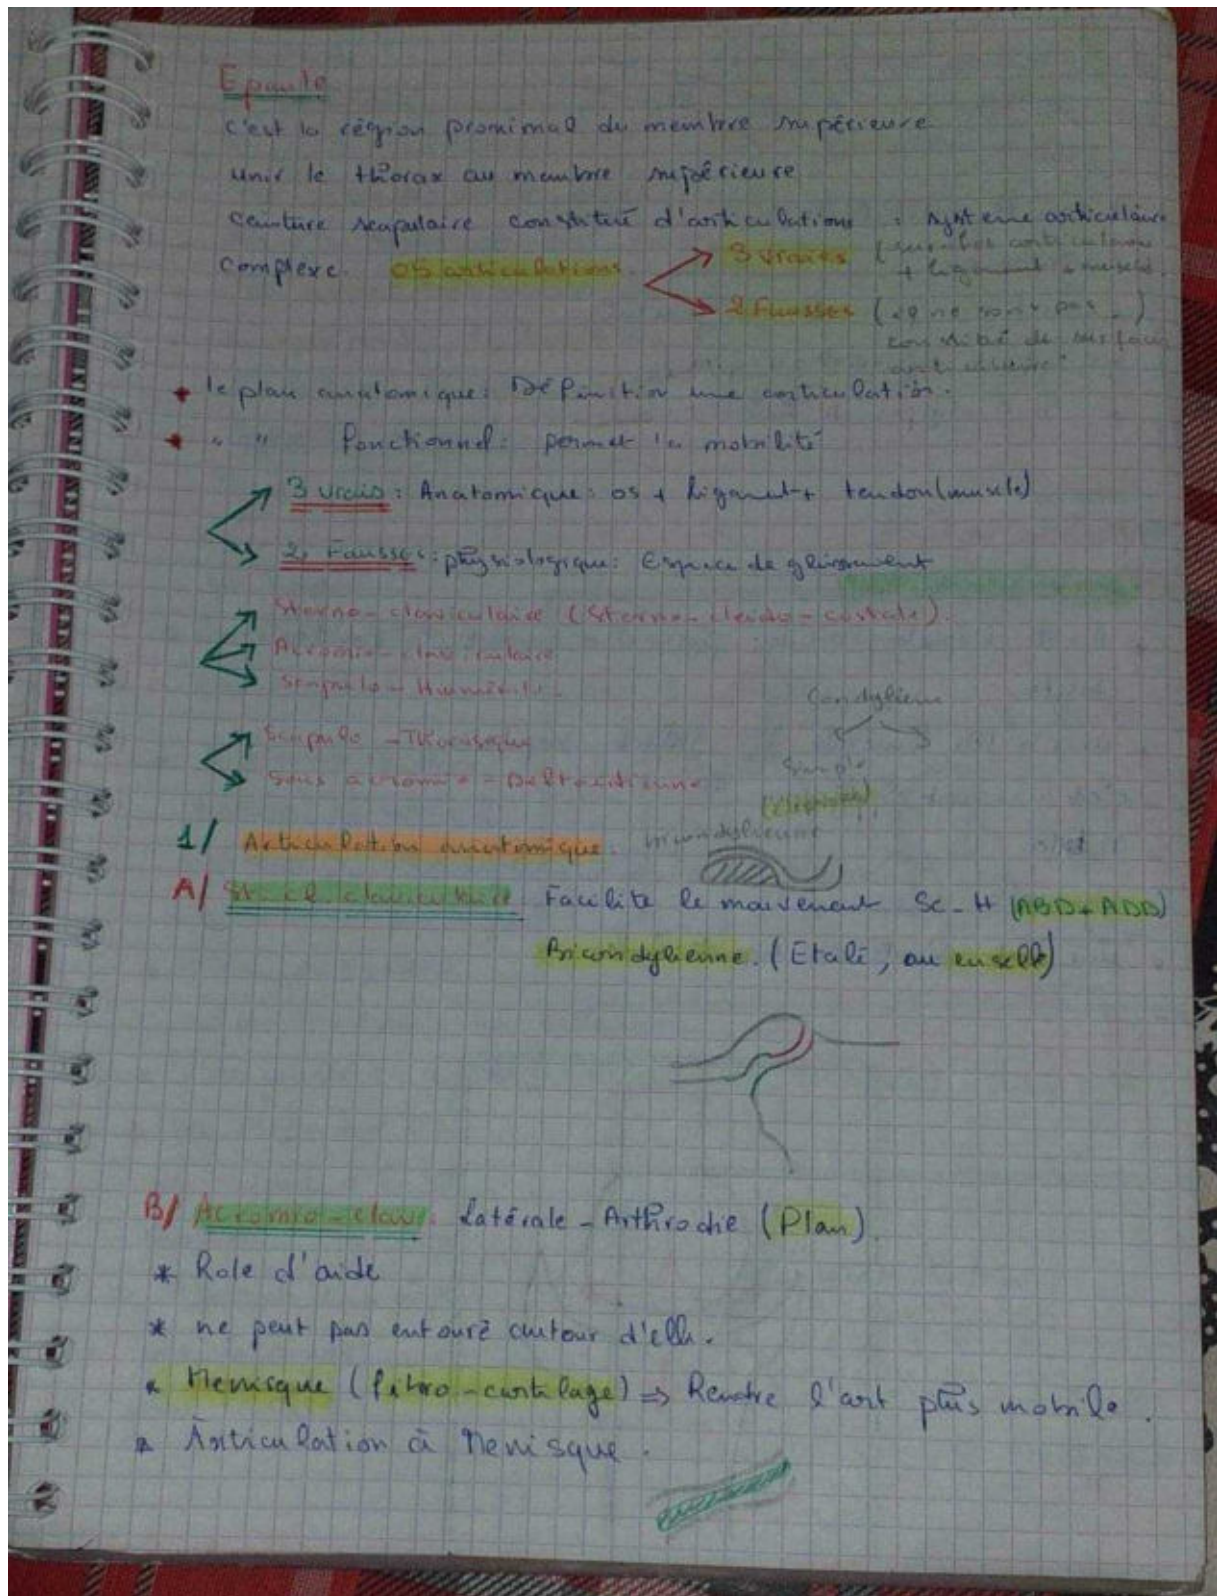 Epaule
c'est la région proximal du membre supérieure
unir le thorax au membre supérieure
Ceinture scapulaire constitué d'articulations : système articulaire
complexe. 05 articulations. 3 vraies (surfaces articulaires
+ ligament + muscle.
2 Fausses (ne sont pas
constitué de surface
articulaire
le plan anatomique : Définition une articulation.
" " fonctionnel : permet la mobilité
3 vraies : Anatomique : os + ligament + tendon (muscle)
2 Fausses : physiologique : Espace de glissement
Sterno-claviculaire (Sterno-cleido-costale).
Acromio-claviculaire
Scapulo-Humérale.
Condylienne
Scapulo-Thoracique
Simple
Sous acromio-Deltoidienne.
1/ Articulation anatomique.
A/ claviculaire Facilite le mouvement Sc-H (ABD + ADD)
Bicondylienne. (Etalé, ou en selle)
B/ Acromio-clav: Latérale - Arthrodie (Plan).
* Role d'aide
* ne peut pas entouré autour d'elle.
* Menisque (fibro-cartilage) ⇒ Rendre l'art plus mobile.
* Articulation à Menisque.